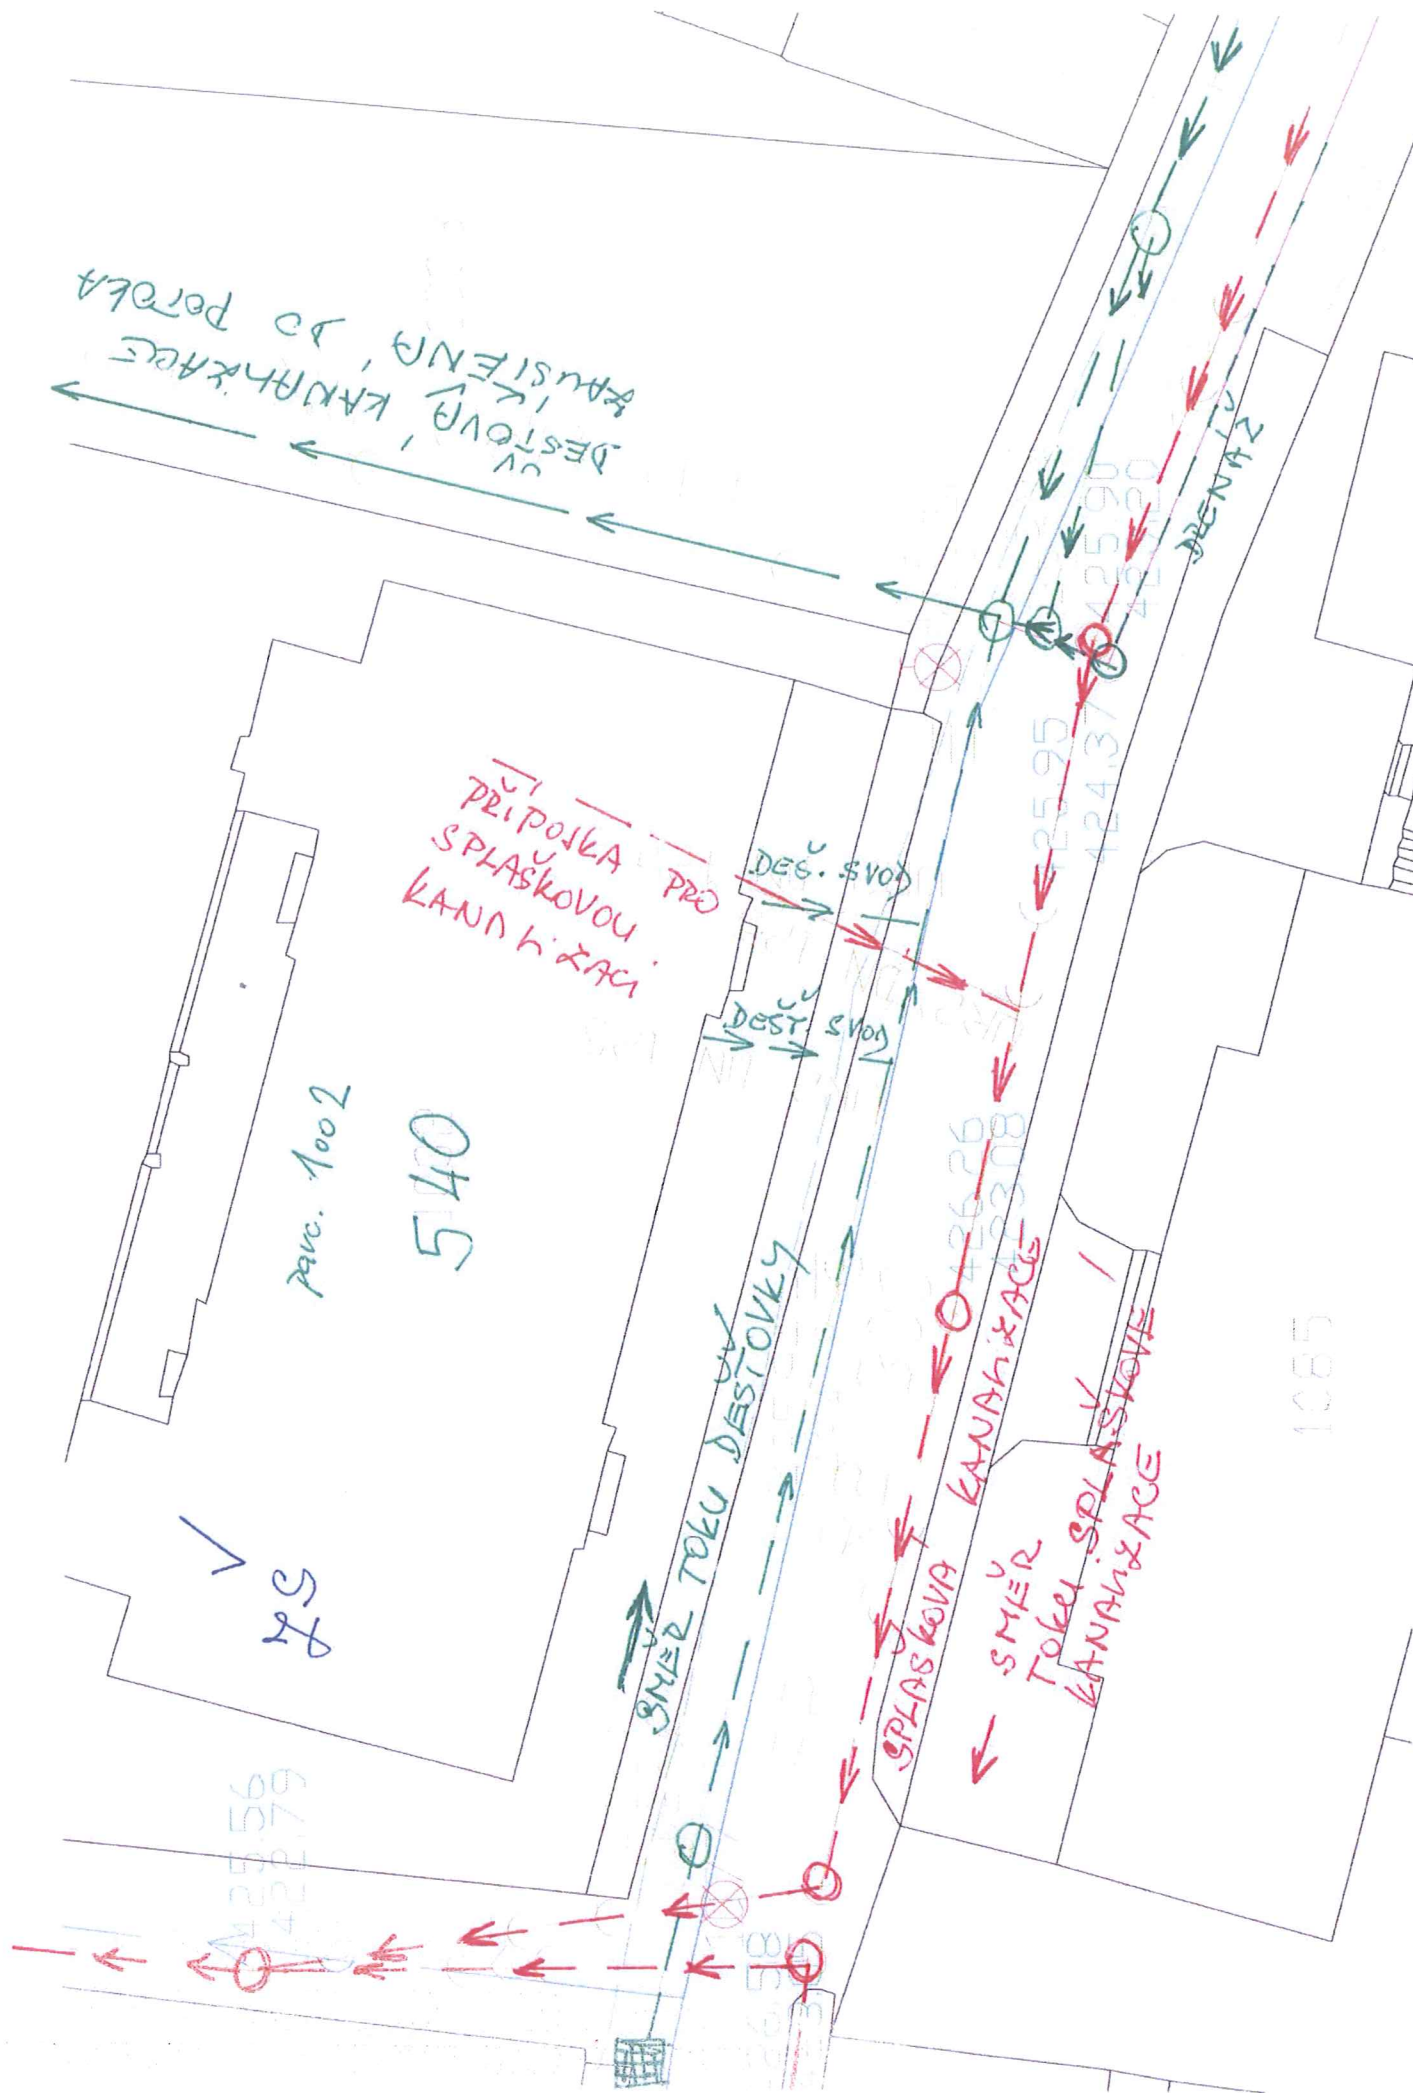 DEŠŤOVÁ KANALIZACE
ZAÚSTĚNÁ DO POTOKA
DRENÁŽ
425.90
425.95
424.37
PŘÍPOJKA PRO
SPLAŠKOVOU
KANALIZACI
DEŠ. SVOD
DEŠŤ. SVOD
parc. 1002
540
426.26
423.08
SMĚR TOKU DEŠŤOVKY
SPLAŠKOVÁ KANALIZACE
SMĚR
TOKU SPLAŠKOVÉ
KANALIZACE
1085
ZŠ
425.56
422.79